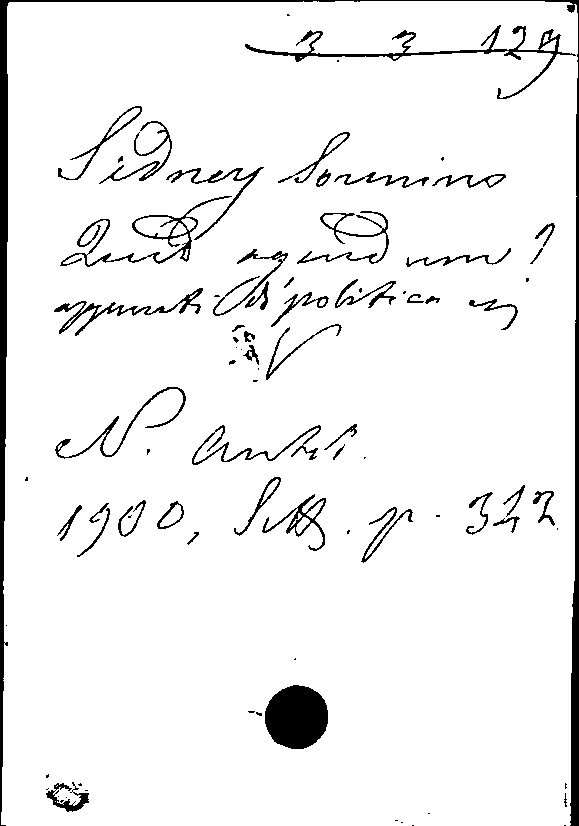 3 3 129
Sidney Sonnino
Quid agendum?
appunti di politica e
N. Antol.
1900, Sett. p. 342